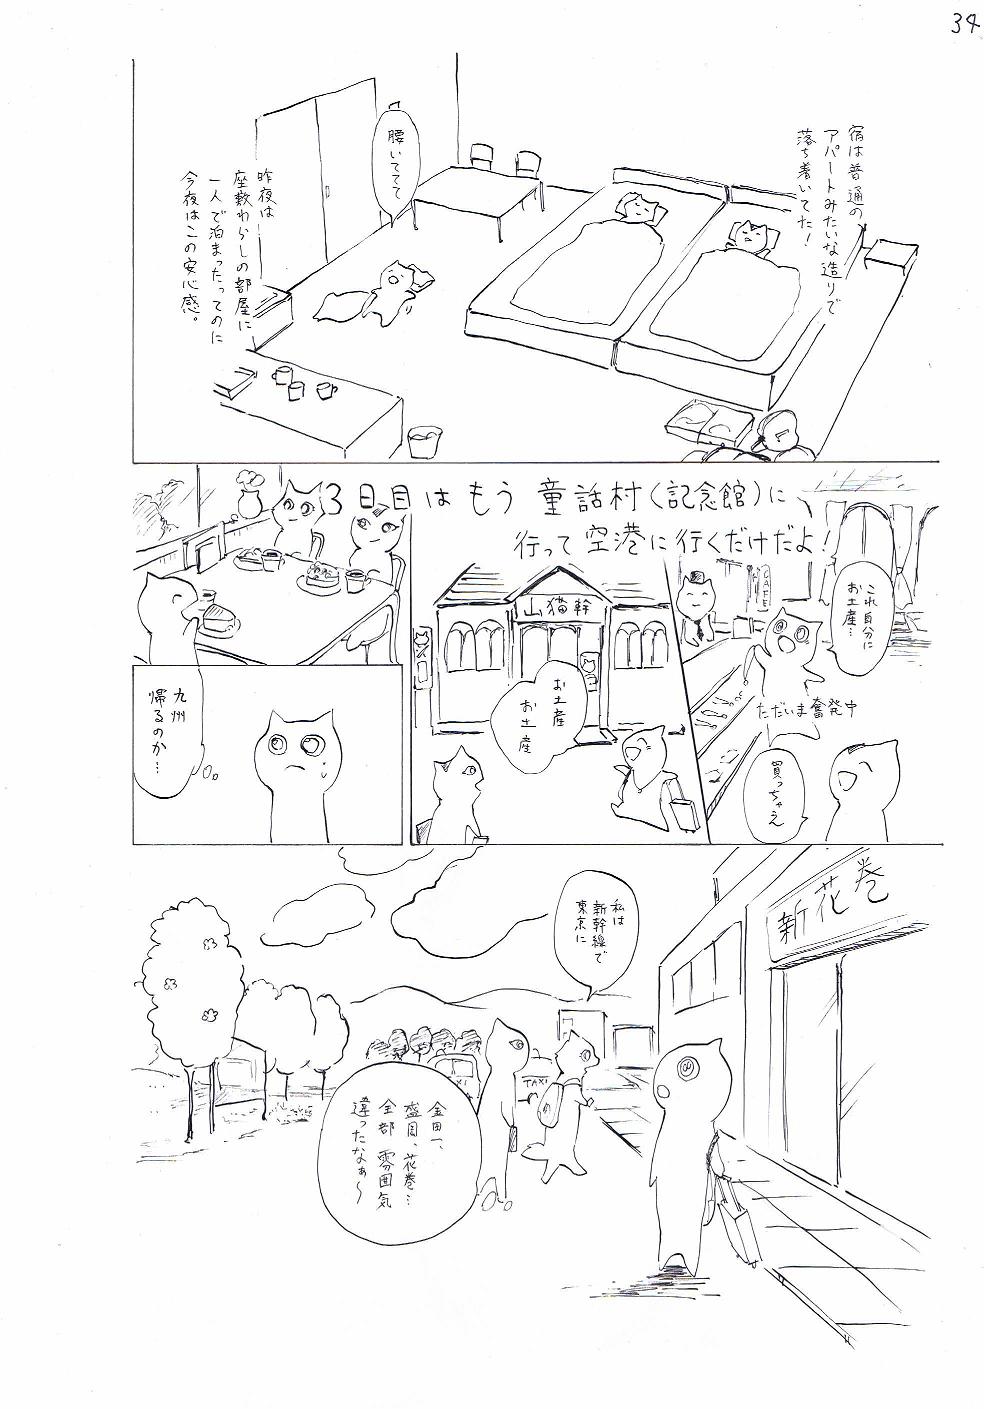 34
宿は普通の
アパートみたいな造りで
落ち着いてた!
腰いててて
昨夜は
座敷わらしの部屋に
一人で泊まったってのに
今夜はこの安心感。
3日目はもう童話村(記念館)に
行って空港に行くだけだよ!
これ自分に
お土産…
CAFE
ただいま奮発中
買っちゃえ
山猫幹
お土産
お土産
九州
帰るのか…
新花巻
私は
新幹線で
東京に
TAXI
XI
金田一、
盛岡、花巻…
全部雰囲気
違ったなぁ〜